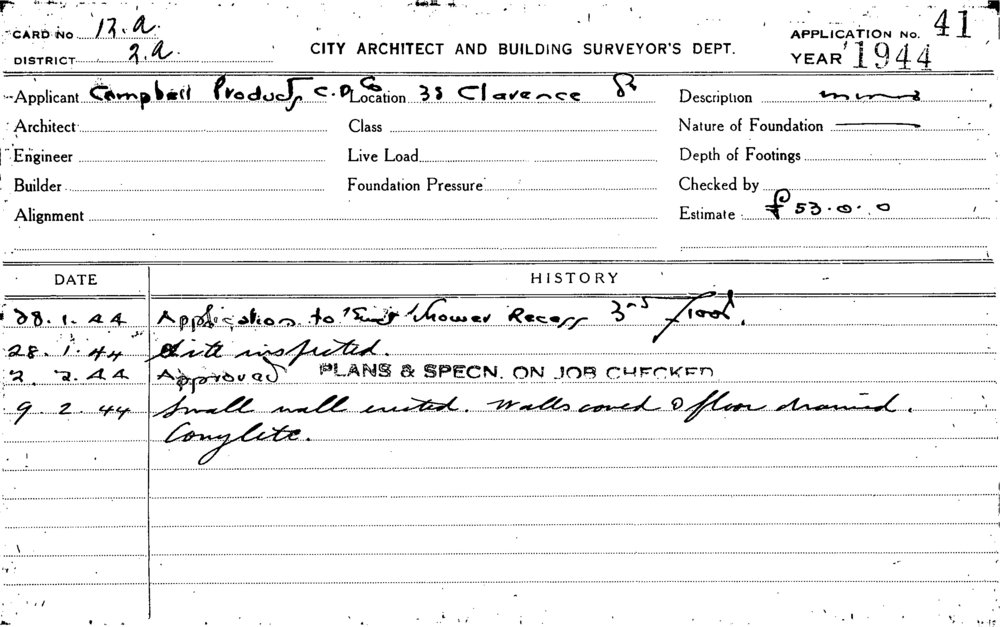 CARD No 12.a.
DISTRICT 2.a.
CITY ARCHITECT AND BUILDING SURVEYOR'S DEPT.
APPLICATION No. 41
YEAR 1944
Applicant Campbell Products C.D. Co Location 38 Clarence St Description
Architect Class Nature of Foundation
Engineer Live Load Depth of Footings
Builder Foundation Pressure Checked by
Alignment Estimate £53.0.0
DATE HISTORY
28.1.44 Application to Shower Recess 3rd floor.
28.1.44 Site inspected.
2.2.44 Approved PLANS & SPECN. ON JOB CHECKED
9.2.44 Small wall erected. Walls coved & floor drained.
Complete.